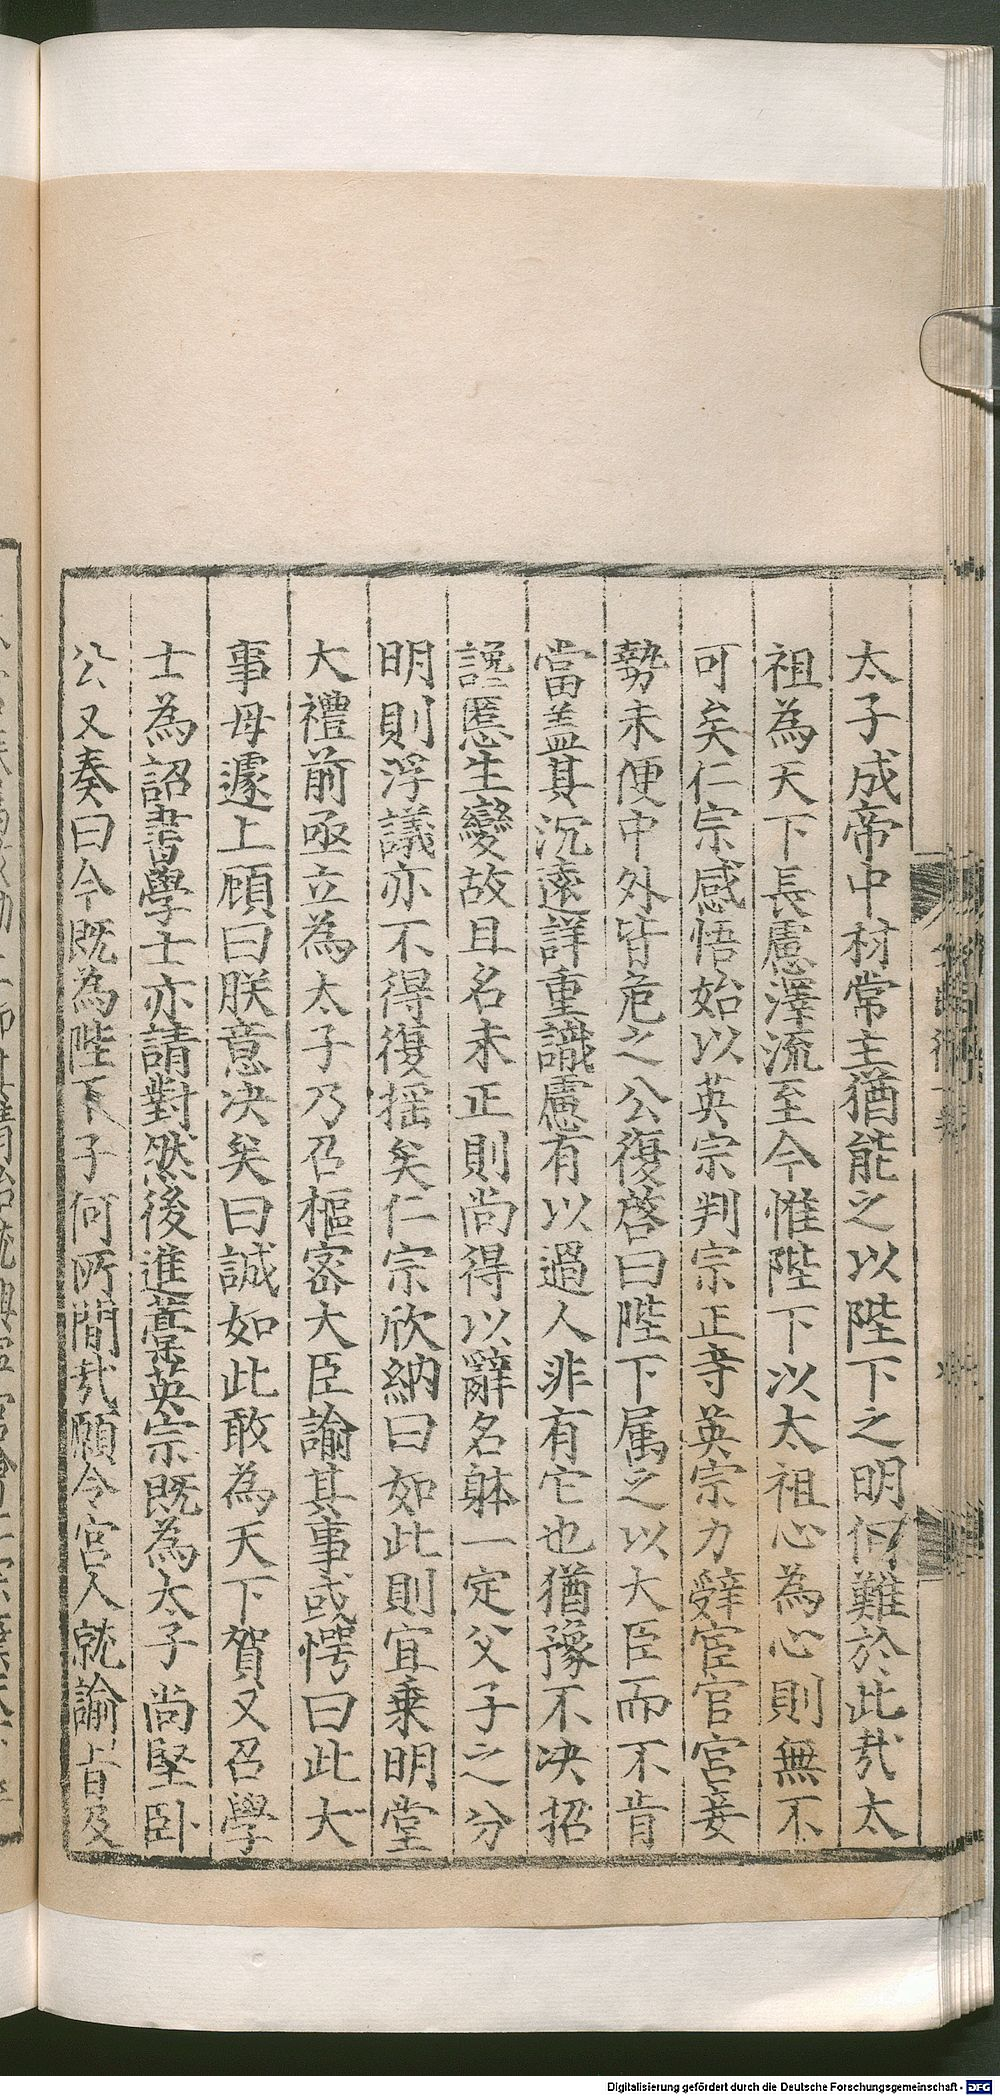 太子成帝中材常主猶能之以陛下之明何難於此㢤太
祖為天下長慮澤流至今惟陛下以太祖心為心則無不
可矣仁宗感悟始以英宗判宗正寺英宗力辤宦官宮妾
勢未便中外皆危之公復啓曰陛下属之以大臣而不肯
當盖其沉遠詳重識慮有以過人非有它也猶豫不决招
讒慝生變故且名未正則尚得以辭名躰一定父子之分
明則浮議亦不得復揺矣仁宗欣納曰如此則宜乗明堂
大禮前亟立為太子乃召樞宻大臣諭其事或愕曰此大
事毋遽上顧曰朕意决矣曰誠如此敢為天下賀又召學
士為詔書學士亦請對然後進藁英宗既為太子尚堅卧
公又奏曰今既為陛下子何所間㢤願令宮人就諭㫖及
Digitalisierung gefördert durch die Deutsche Forschungsgemeinschaft - DFG